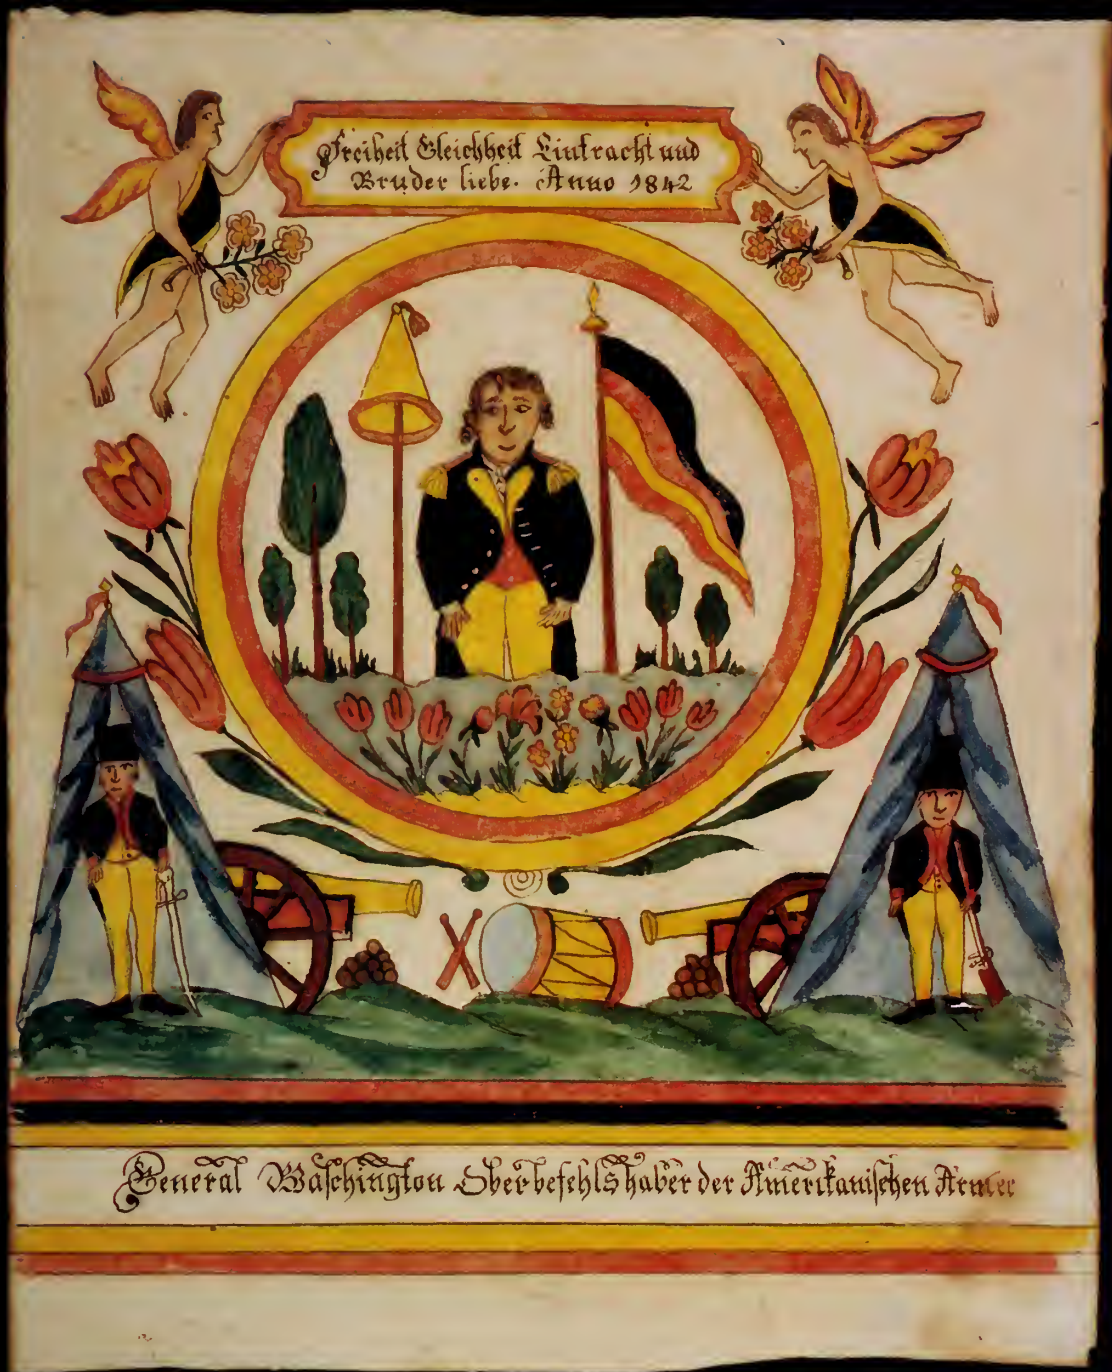 Freiheit Gleichheit Eintracht und
Bruder liebe. Anno 1842
General Waschington Oberbefehlshaber der Amerikanischen Armee